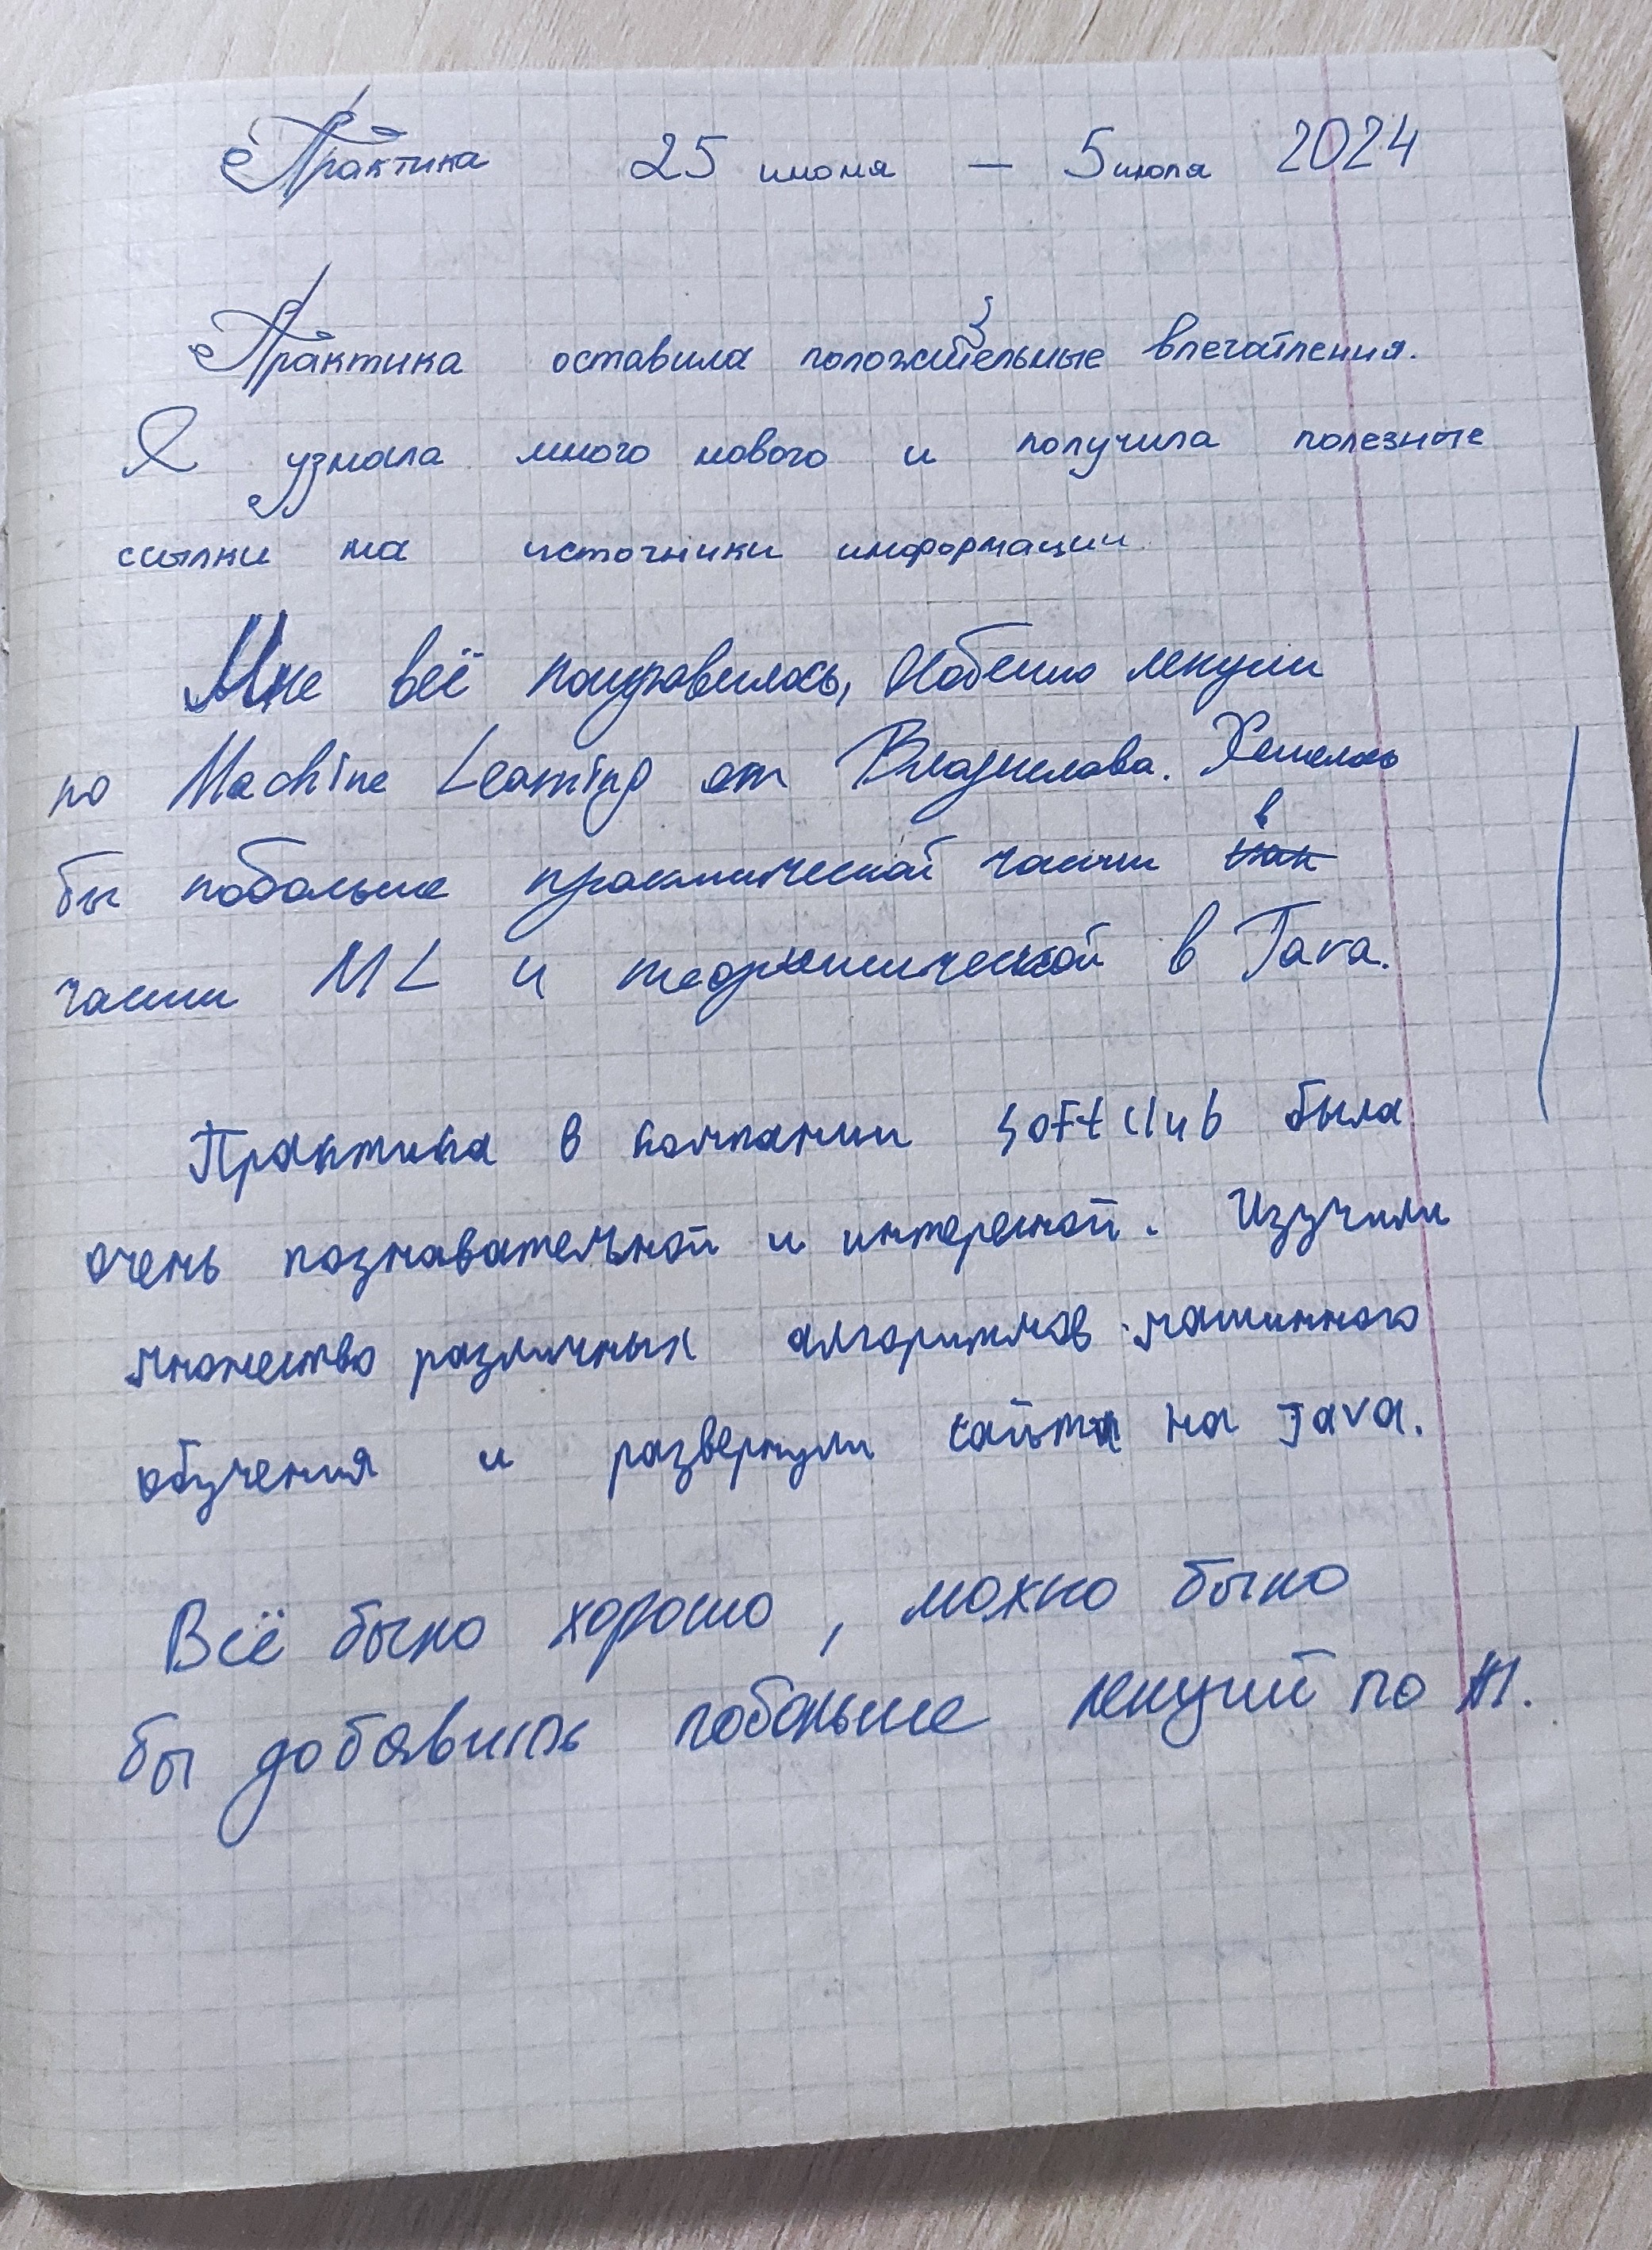 Практика 25 июня — 5 июля 2024
Практика оставила положительные впечатления.
Я узнала много нового и получила полезные
ссылки на источники информации.
Мне всё понравилось, Особенно лекции
по Machine Learning от Владислава. Хотелось
бы побольше практической части в
части ML и теоритической в Java.
Практика в компании softclub была
очень познавательной и интересной. Изучили
множество различных алгоритмов машинного
обучения и развернули сайт на Java.
Всё было хорошо, можно было
бы добавить побольше лекций по